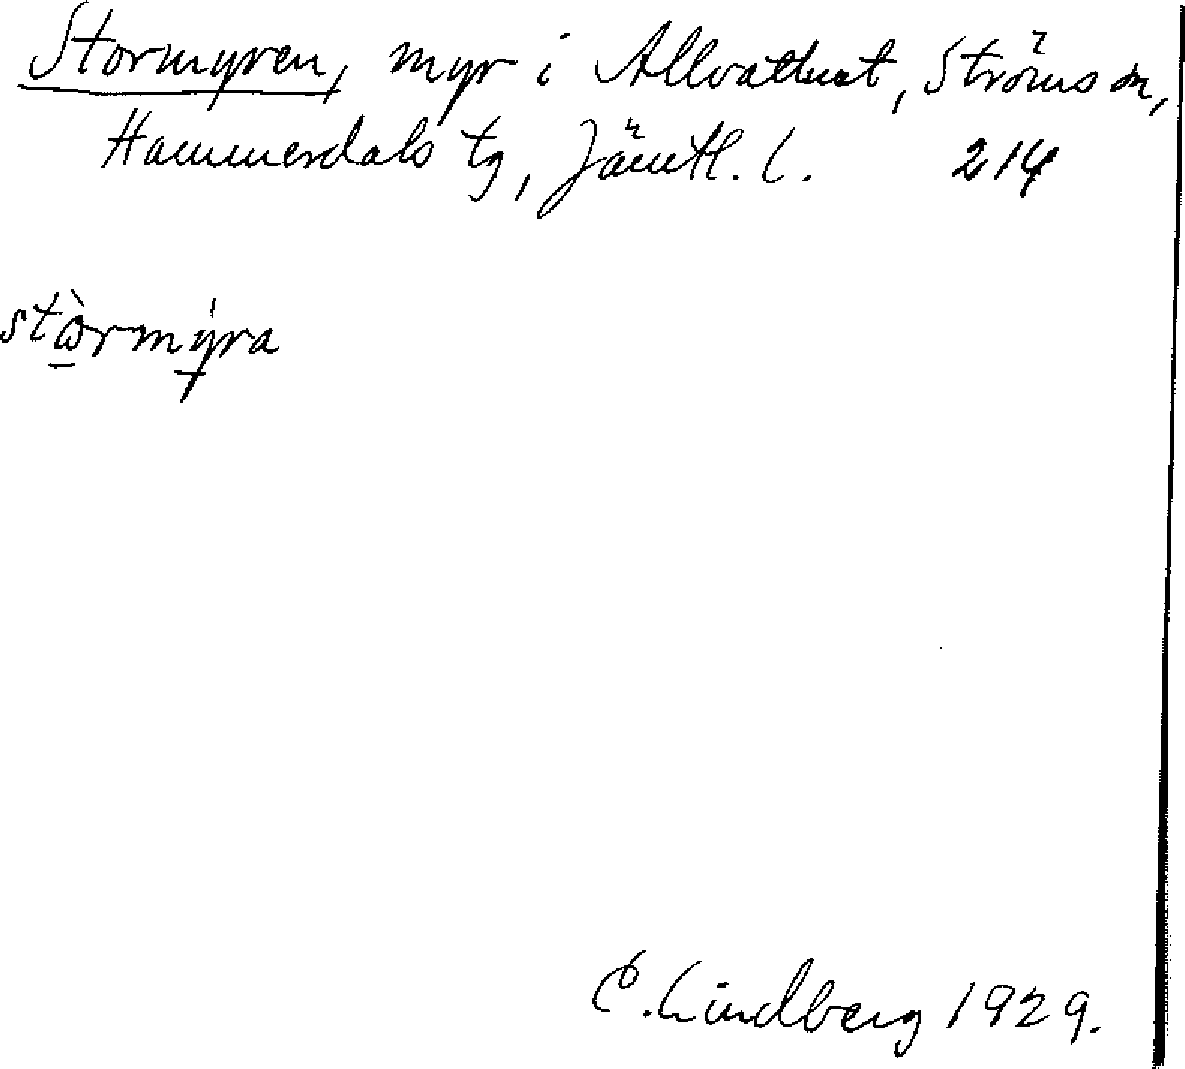 Stormyren, myr i Allvattnet, Ströms sn,
Hammerdals tg, Jämtl. l. 214
stὼ̱rmýra
C. Lindberg 1929.